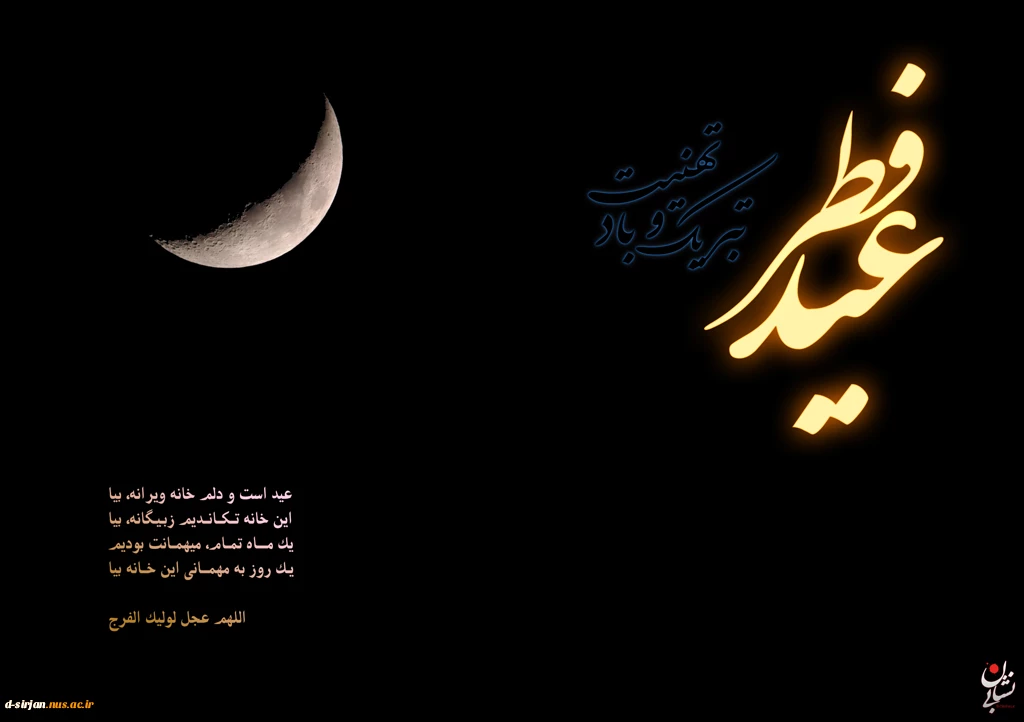 عید فطر
تبریک و تهنیت باد
عید است و دلم خانه ویرانه، بیا
این خانه تکاندیم زبیگانه، بیا
یك ماه تمام، میهمانت بودیم
یك روز به مهمانی این خانه بیا
اللهم عجل لولیك الفرج
d-sirjan.nus.ac.ir